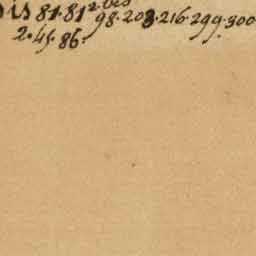 81.81² 98.203.216.299.300
2.45.86.